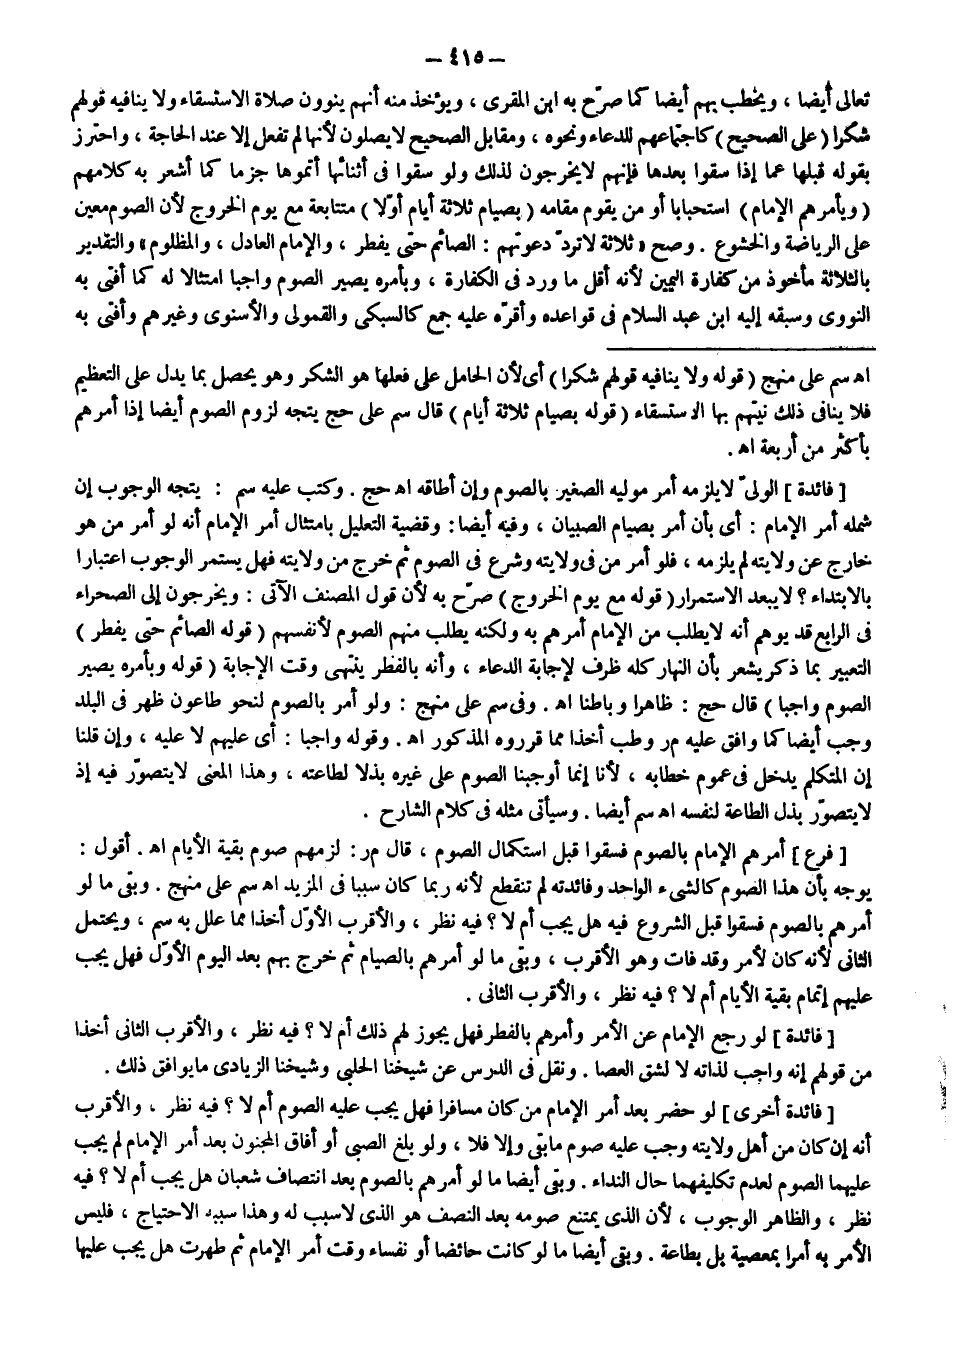 – ٤١٥ –
تعالى أيضا ، ويخطب بهم أيضا كما صرّح به ابن المقرى ، ويؤخذ منه أنهم ينوون صلاة الاستسقاء ولا ينافيه قولهم
شكرا ( على الصحيح ) كاجتماعهم للدعاء ونحوه ، ومقابل الصحيح لا يصلون لأنها لم تفعل إلا عند الحاجة ، واحترز
بقوله قبلها عما إذا سقوا بعدها فإنهم لا يخرجون لذلك ولو سقوا فى أثنائها أتموها جزما كما أشعر به كلامهم
( ويأمرهم الإمام ) استحبابا أو من يقوم مقامه ( بصيام ثلاثة أيام أوّلا ) متتابعة مع يوم الخروج لأن الصوم معين
على الرياضة والخشوع . وصح « ثلاثة لا تردّ دعوتهم : الصائم حتى يفطر ، والإمام العادل ، والمظلوم » والتقدير
بالثلاثة مأخوذ من كفارة اليمين لأنه أقل ما ورد فى الكفارة ، وبأمره يصير الصوم واجبا امتثالا له كما أفتى به
النووى وسبقه إليه ابن عبد السلام فى قواعده وأقرّه عليه جمع كالسبكى والقمولى والأسنوى وغيرهم وأفتى به
اه سم على منهج ( قوله ولا ينافيه قولهم شكرا ) أى لأن الحامل على فعلها هو الشكر وهو يحصل بما يدل على التعظيم
فلا ينافى ذلك نيتهم بها الاستسقاء ( قوله بصيام ثلاثة أيام ) قال سم على حج يتجه لزوم الصوم أيضا إذا أمرهم
بأكثر من أربعة اه .
[ فائدة ] الولىّ لا يلزمه أمر موليه الصغير بالصوم وإن أطاقه اه حج . وكتب عليه سم : يتجه الوجوب إن
شمله أمر الإمام : أى بأن أمر بصيام الصبيان ، وفيه أيضا : وقضية التعليل بامتثال أمر الإمام أنه لو أمر من هو
خارج عن ولايته لم يلزمه ، فلو أمر من فى ولايته وشرع فى الصوم ثم خرج من ولايته فهل يستمر الوجوب اعتبارا
بالابتداء ؟ لا يبعد الاستمرار ( قوله مع يوم الخروج ) صرّح به لأن قول المصنف الآتى : ويخرجون إلى الصحراء
فى الرابع قد يوهم أنه لا يطلب من الإمام أمرهم به ولكنه يطلب منهم الصوم لأنفسهم ( قوله الصائم حتى يفطر )
التعبير بما ذكر يشعر بأن النهار كله ظرف لإجابة الدعاء ، وأنه بالفطر ينتهى وقت الإجابة ( قوله وبأمره يصير
الصوم واجبا ) قال حج : ظاهرا وباطنا اه . وفى سم على منهج : ولو أمر بالصوم لنحو طاعون ظهر فى البلد
وجب أيضا كما وافق عليه مر وطب أخذا مما قرروه المذكور اه . وقوله واجبا : أى عليهم لا عليه ، وإن قلنا
إن المتكلم يدخل فى عموم خطابه ، لأنا إنما أوجبنا الصوم على غيره بذلا لطاعته ، وهذا المعنى لا يتصوّر فيه إذ
لا يتصوّر بذل الطاعة لنفسه اه سم أيضا . وسيأتى مثله فى كلام الشارح .
[ فرع ] أمرهم الإمام بالصوم فسقوا قبل استكمال الصوم ، قال مر : لزمهم صوم بقية الأيام اه . أقول :
يوجه بأن هذا الصوم كالشىء الواحد وفائدته لم تنقطع لأنه ربما كان سببا فى المزيد اه سم على منهج . وبقى ما لو
أمرهم بالصوم فسقوا قبل الشروع فيه هل يجب أم لا ؟ فيه نظر ، والأقرب الأوّل أخذا مما علل به سم ، ويحتمل
الثانى لأنه كان لأمر وقد فات وهو الأقرب ، وبقى ما لو أمرهم بالصيام ثم خرج بهم بعد اليوم الأوّل فهل يجب
عليهم إتمام بقية الأيام أم لا ؟ فيه نظر ، والأقرب الثانى .
[ فائدة ] لو رجع الإمام عن الأمر وأمرهم بالفطر فهل يجوز لهم ذلك أم لا ؟ فيه نظر ، والأقرب الثانى أخذا
من قولهم إنه واجب لذاته لا لشق العصا . ونقل فى الدرس عن شيخنا الحلبى وشيخنا الزيادى ما يوافق ذلك .
[ فائدة أخرى ] لو حضر بعد أمر الإمام من كان مسافرا فهل يجب عليه الصوم أم لا ؟ فيه نظر ، والأقرب
أنه إن كان من أهل ولايته وجب عليه صوم ما بقى وإلا فلا ، ولو بلغ الصبى أو أفاق المجنون بعد أمر الإمام لم يجب
عليهما الصوم لعدم تكليفهما حال النداء . وبقى أيضا ما لو أمرهم بالصوم بعد انتصاف شعبان هل يجب أم لا ؟ فيه
نظر ، والظاهر الوجوب ، لأن الذى يمتنع صومه بعد النصف هو الذى لا سبب له وهذا سببه الاحتياج ، فليس
الأمر به أمرا بمعصية بل بطاعة . وبقى أيضا ما لو كانت حائضا أو نفساء وقت أمر الإمام ثم طهرت هل يجب عليها